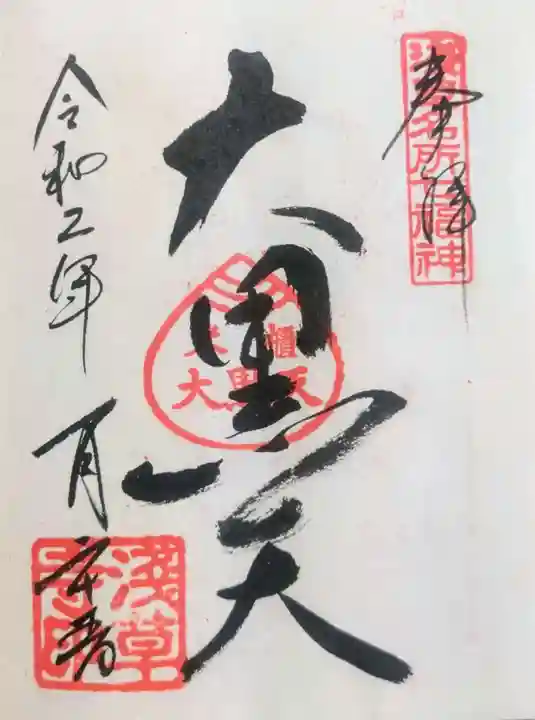 奉拝
浅草名所七福神
大黒天
米櫃
大黒天
令和二年 月吉書
浅草